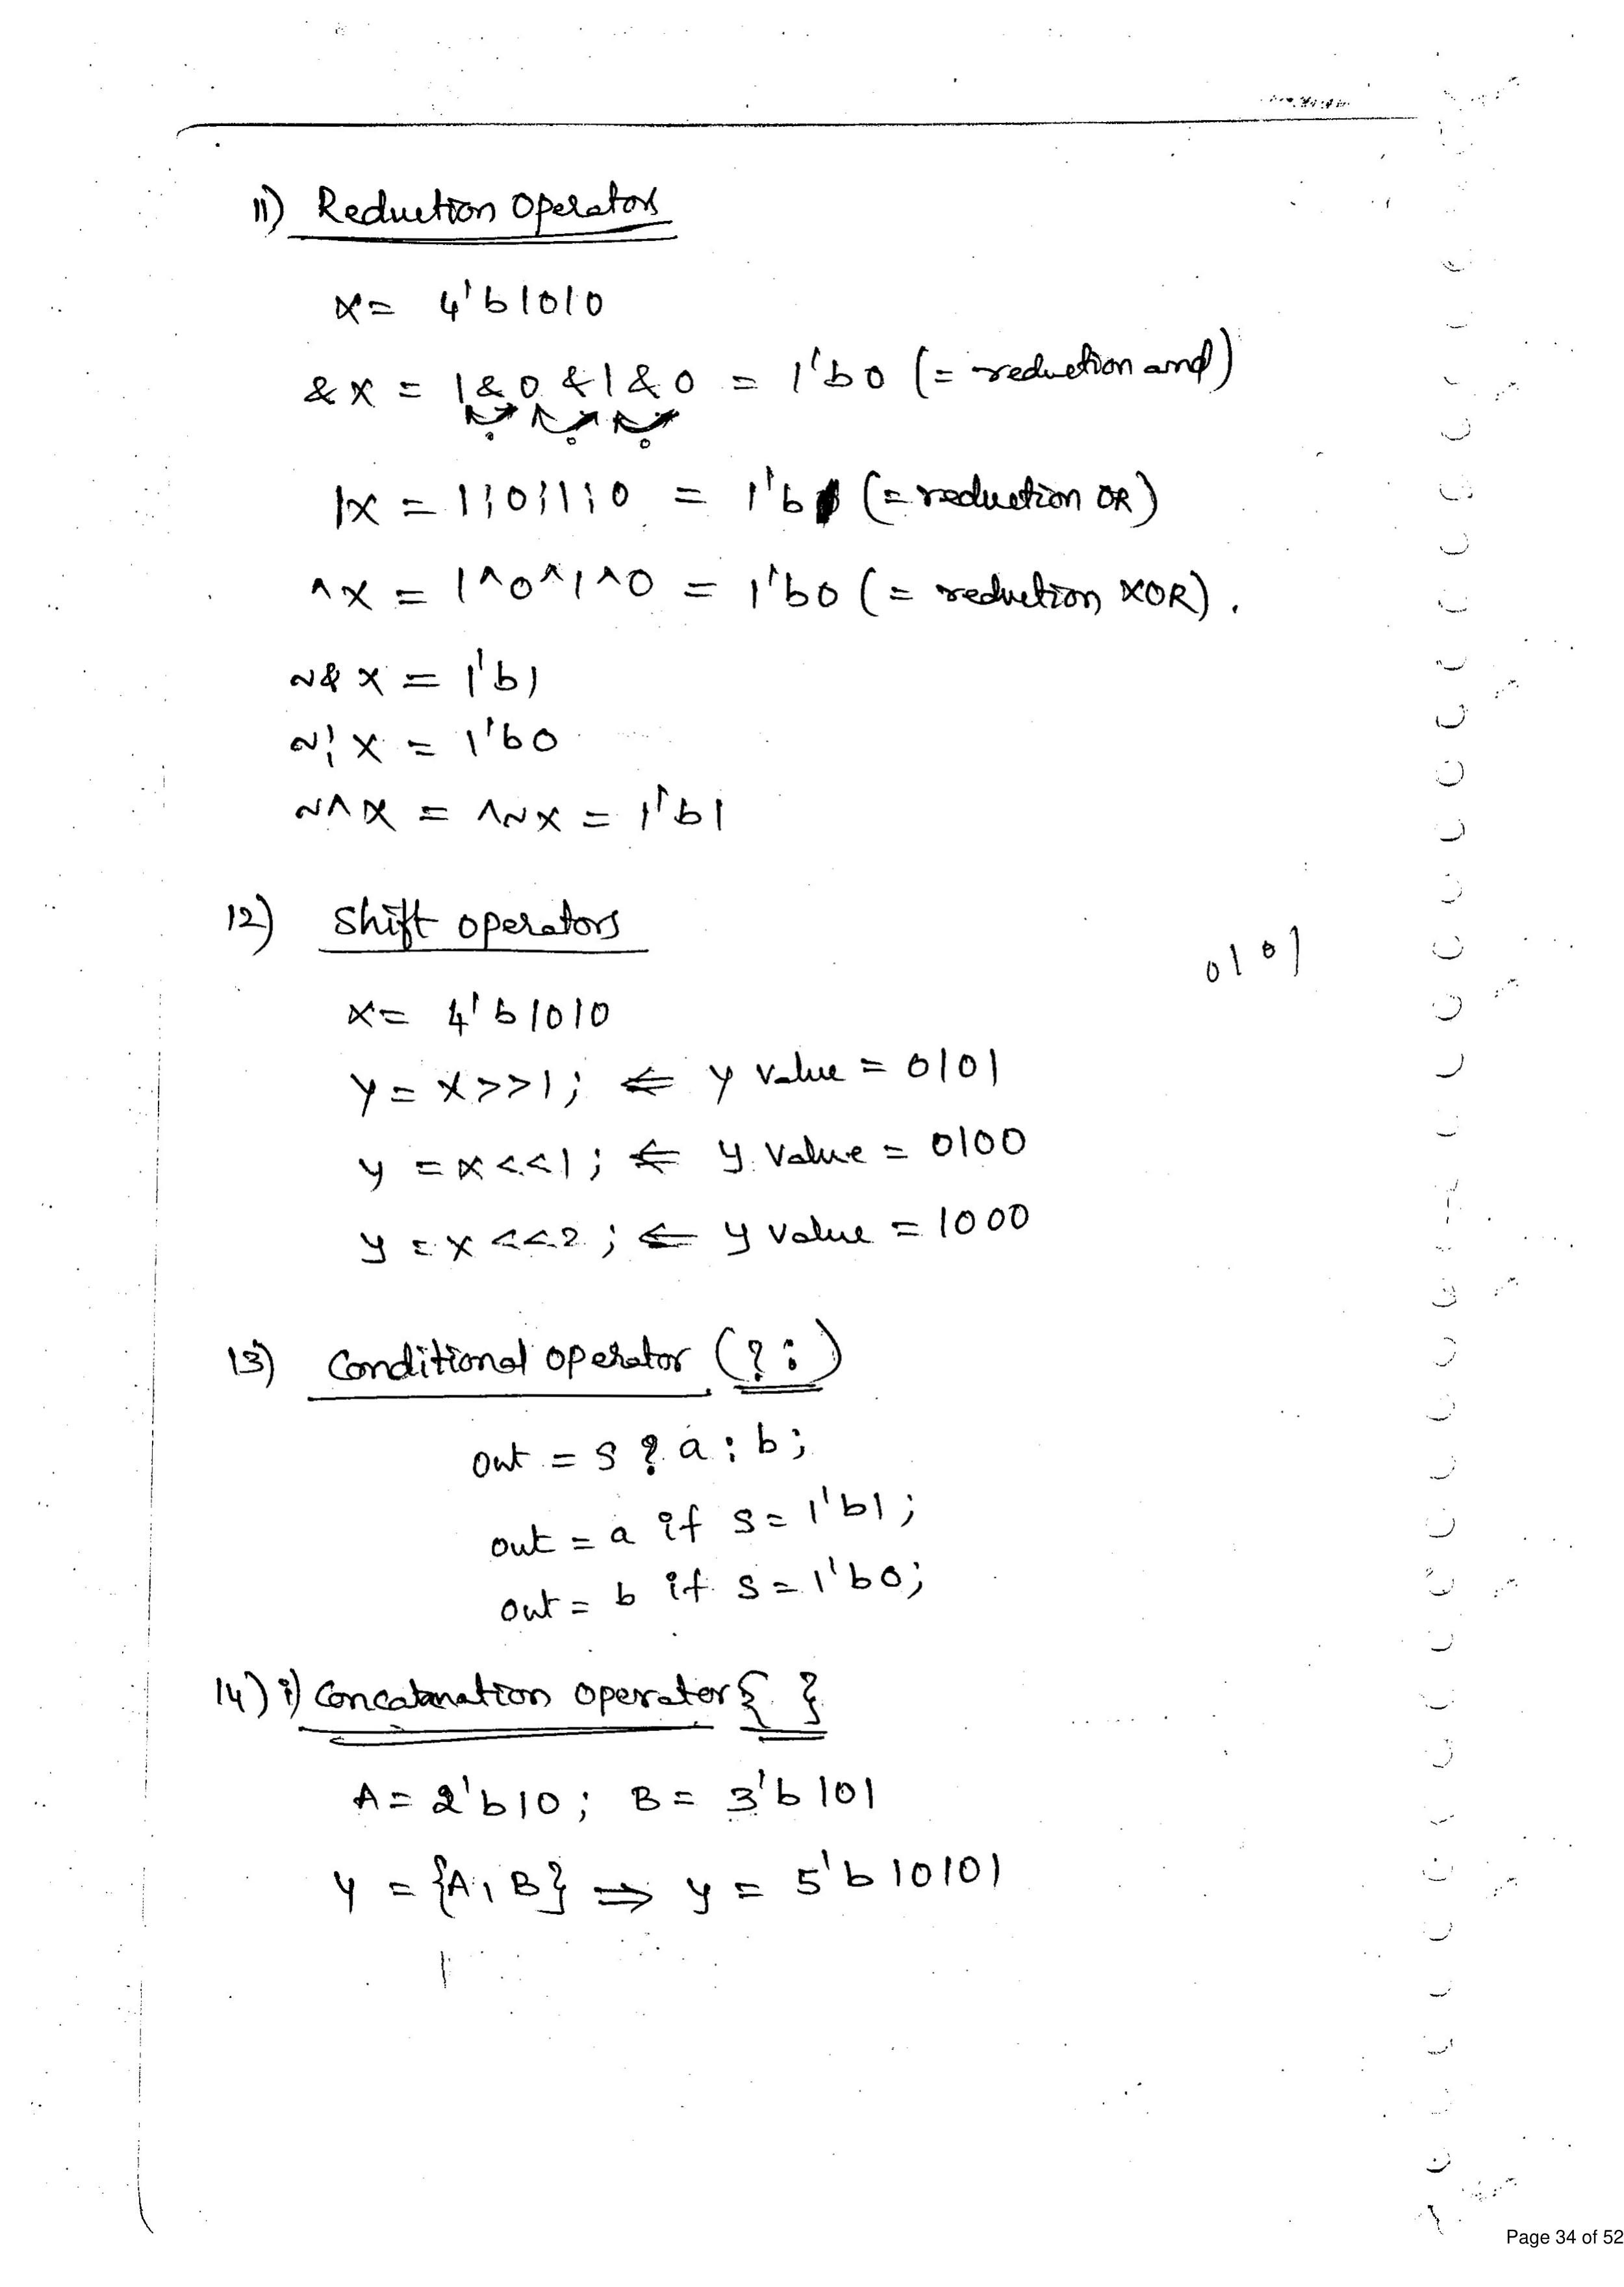 11) Reduction Operators
X = 4'b1010
& X = 1 & 0 & 1 & 0 = 1'b0 (= reduction and)
0 0 0
|X = 1¦0¦1¦0 = 1'b1 (= reduction OR)
^X = 1^0^1^0 = 1'b0 (= reduction XOR).
~& X = 1'b1
~¦ X = 1'b0
~^X = ^~X = 1'b1
12) Shift operators
0101
X = 4'b1010
Y = X>>1; ⇐ y value = 0101
y = x<<1; ⇐ y value = 0100
y = x<<2; ⇐ y value = 1000
13) Conditional operator (?:)
out = s ? a : b;
out = a if s = 1'b1;
out = b if s = 1'b0;
14) i) Concatenation operator { }
A = 2'b10; B = 3'b101
Y = {A, B} ⇒ y = 5'b10101
Page 34 of 52